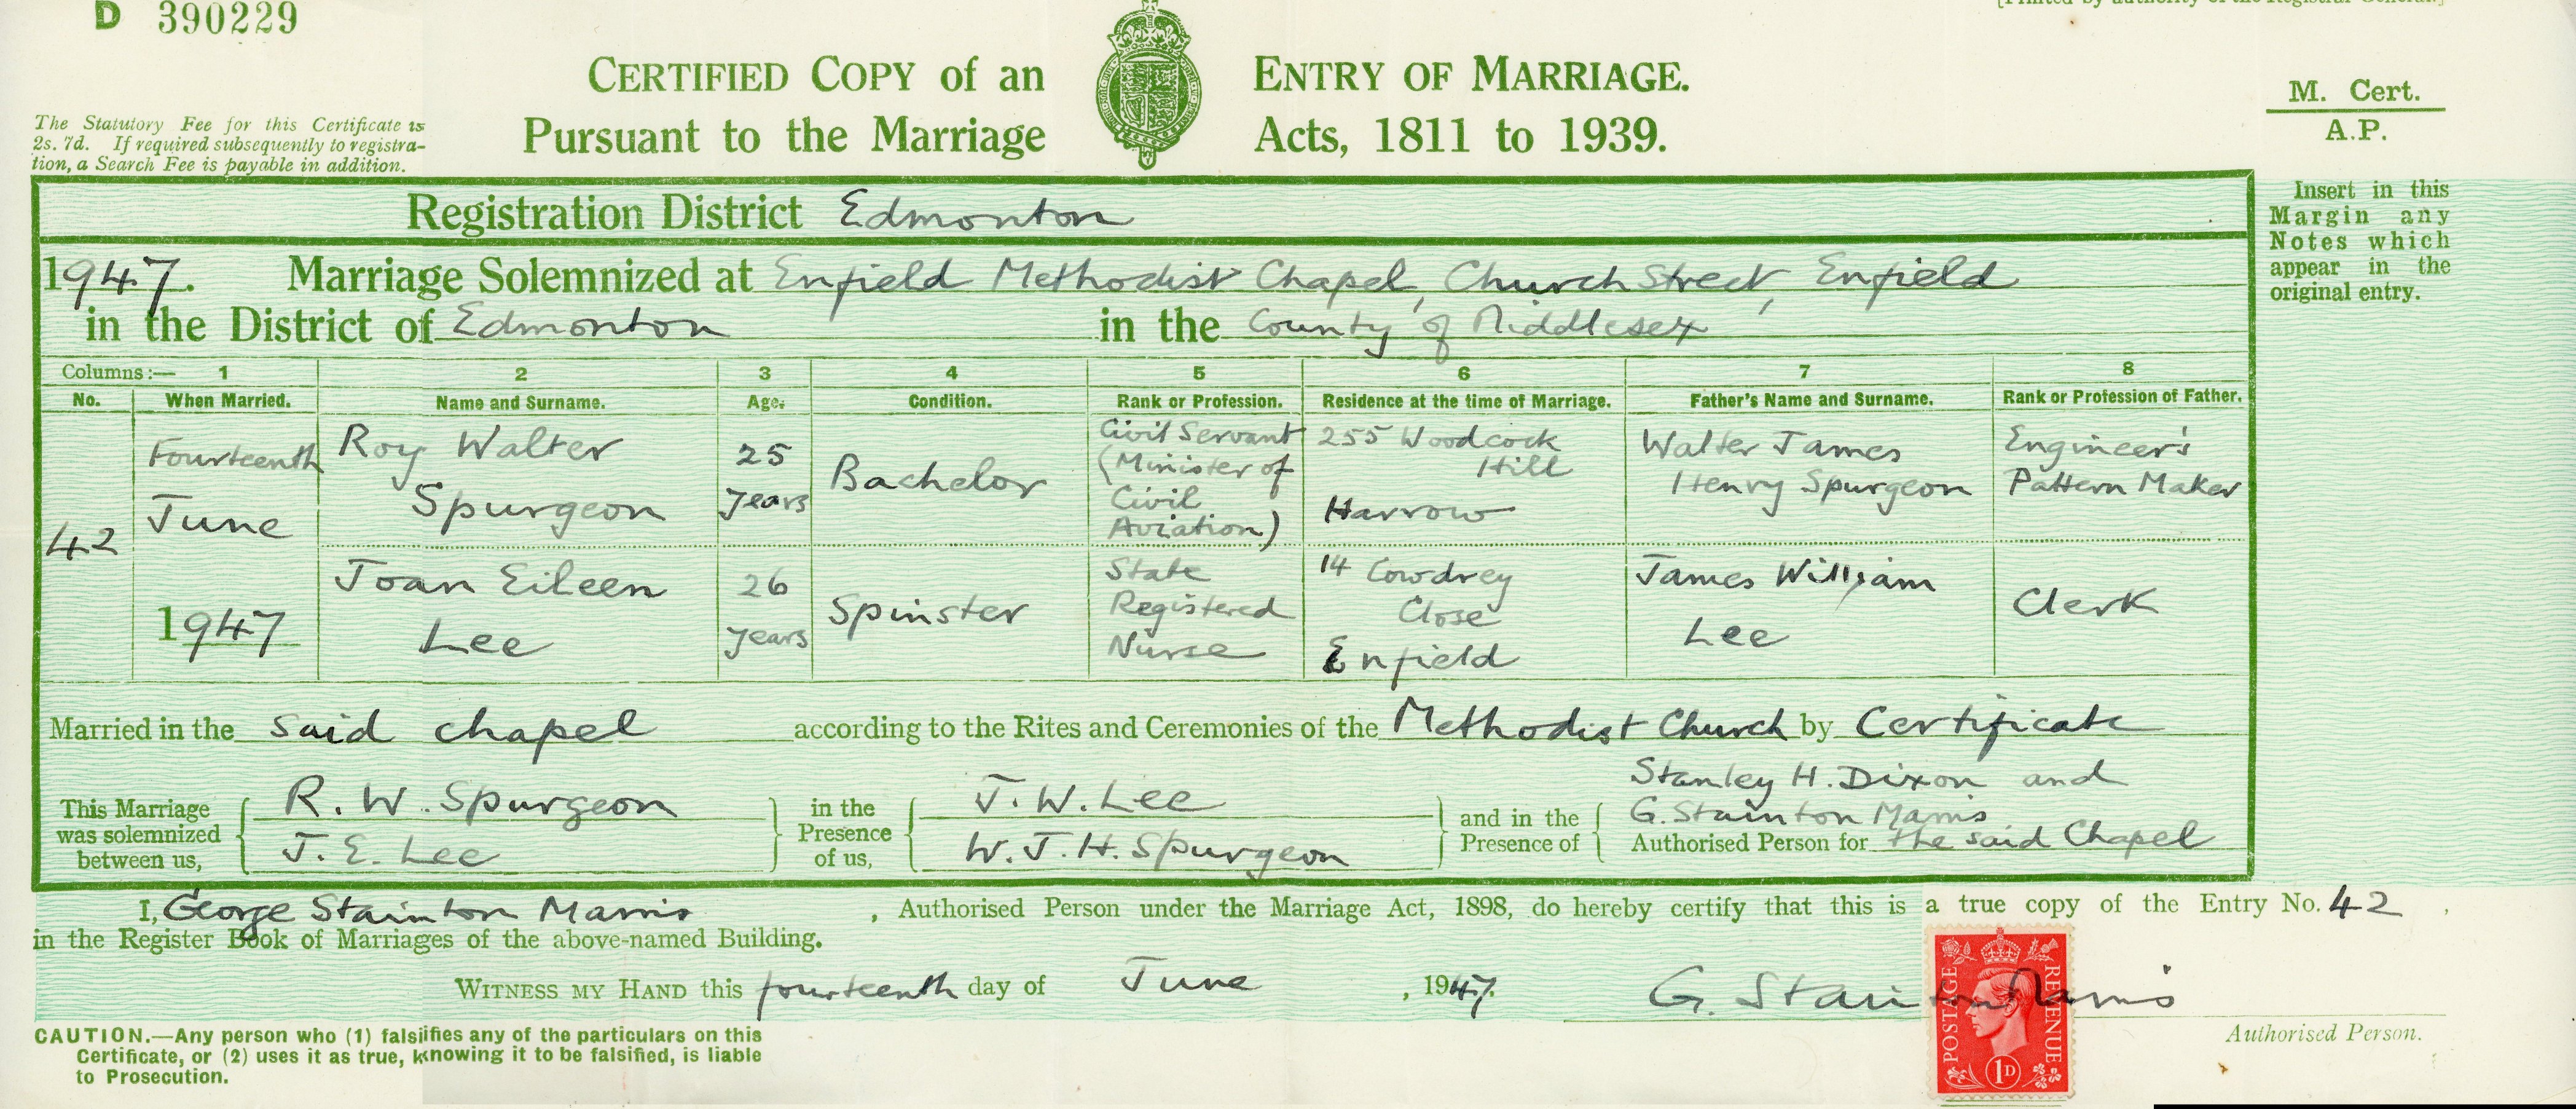 D 390229
CERTIFIED COPY of an ENTRY OF MARRIAGE.
Pursuant to the Marriage Acts, 1811 to 1939.
M. Cert.
A.P.
The Statutory Fee for this Certificate is
2s. 7d. If required subsequently to registra-
tion, a Search Fee is payable in addition.
Insert in this
Margin any
Notes which
appear in the
original entry.
Registration District Edmonton
1947. Marriage Solemnized at Enfield Methodist Chapel, Church Street, Enfield
in the District of Edmonton in the County of Middlesex
Columns:— 1 2 3 4 5 6 7 8
No. When Married. Name and Surname. Age. Condition. Rank or Profession. Residence at the time of Marriage. Father's Name and Surname. Rank or Profession of Father.
42
Fourteenth
June
1947
Roy Walter
Spurgeon
25
years
Bachelor
Civil Servant
(Minister of
Civil
Aviation)
255 Woodcock
Hill
Harrow
Walter James
Henry Spurgeon
Engineer's
Pattern Maker
Joan Eileen
Lee
26
years
Spinster
State
Registered
Nurse
14 Cowdrey
Close
Enfield
James William
Lee
Clerk
Married in the said chapel according to the Rites and Ceremonies of the Methodist Church by Certificate
This Marriage
was solemnized
between us,
R. W. Spurgeon
J. E. Lee
in the
Presence
of us,
J. W. Lee
W. J. H. Spurgeon
and in the
Presence of
Stanley H. Dixon and
G. Stainton
Authorised Person for the said Chapel
I, George Stainton , Authorised Person under the Marriage Act, 1898, do hereby certify that this is a true copy of the Entry No. 42 ,
in the Register Book of Marriages of the above-named Building.
WITNESS MY HAND this fourteenth day of June , 1947.
G. Stainton
Authorised Person.
POSTAGE REVENUE
1D
CAUTION.—Any person who (1) falsifies any of the particulars on this
Certificate, or (2) uses it as true, knowing it to be falsified, is liable
to Prosecution.